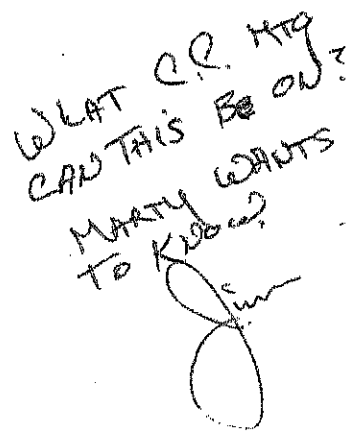 WHAT C.C. MTG
CAN THIS BE ON?
MARTY WANTS
TO KNOW?
Jim